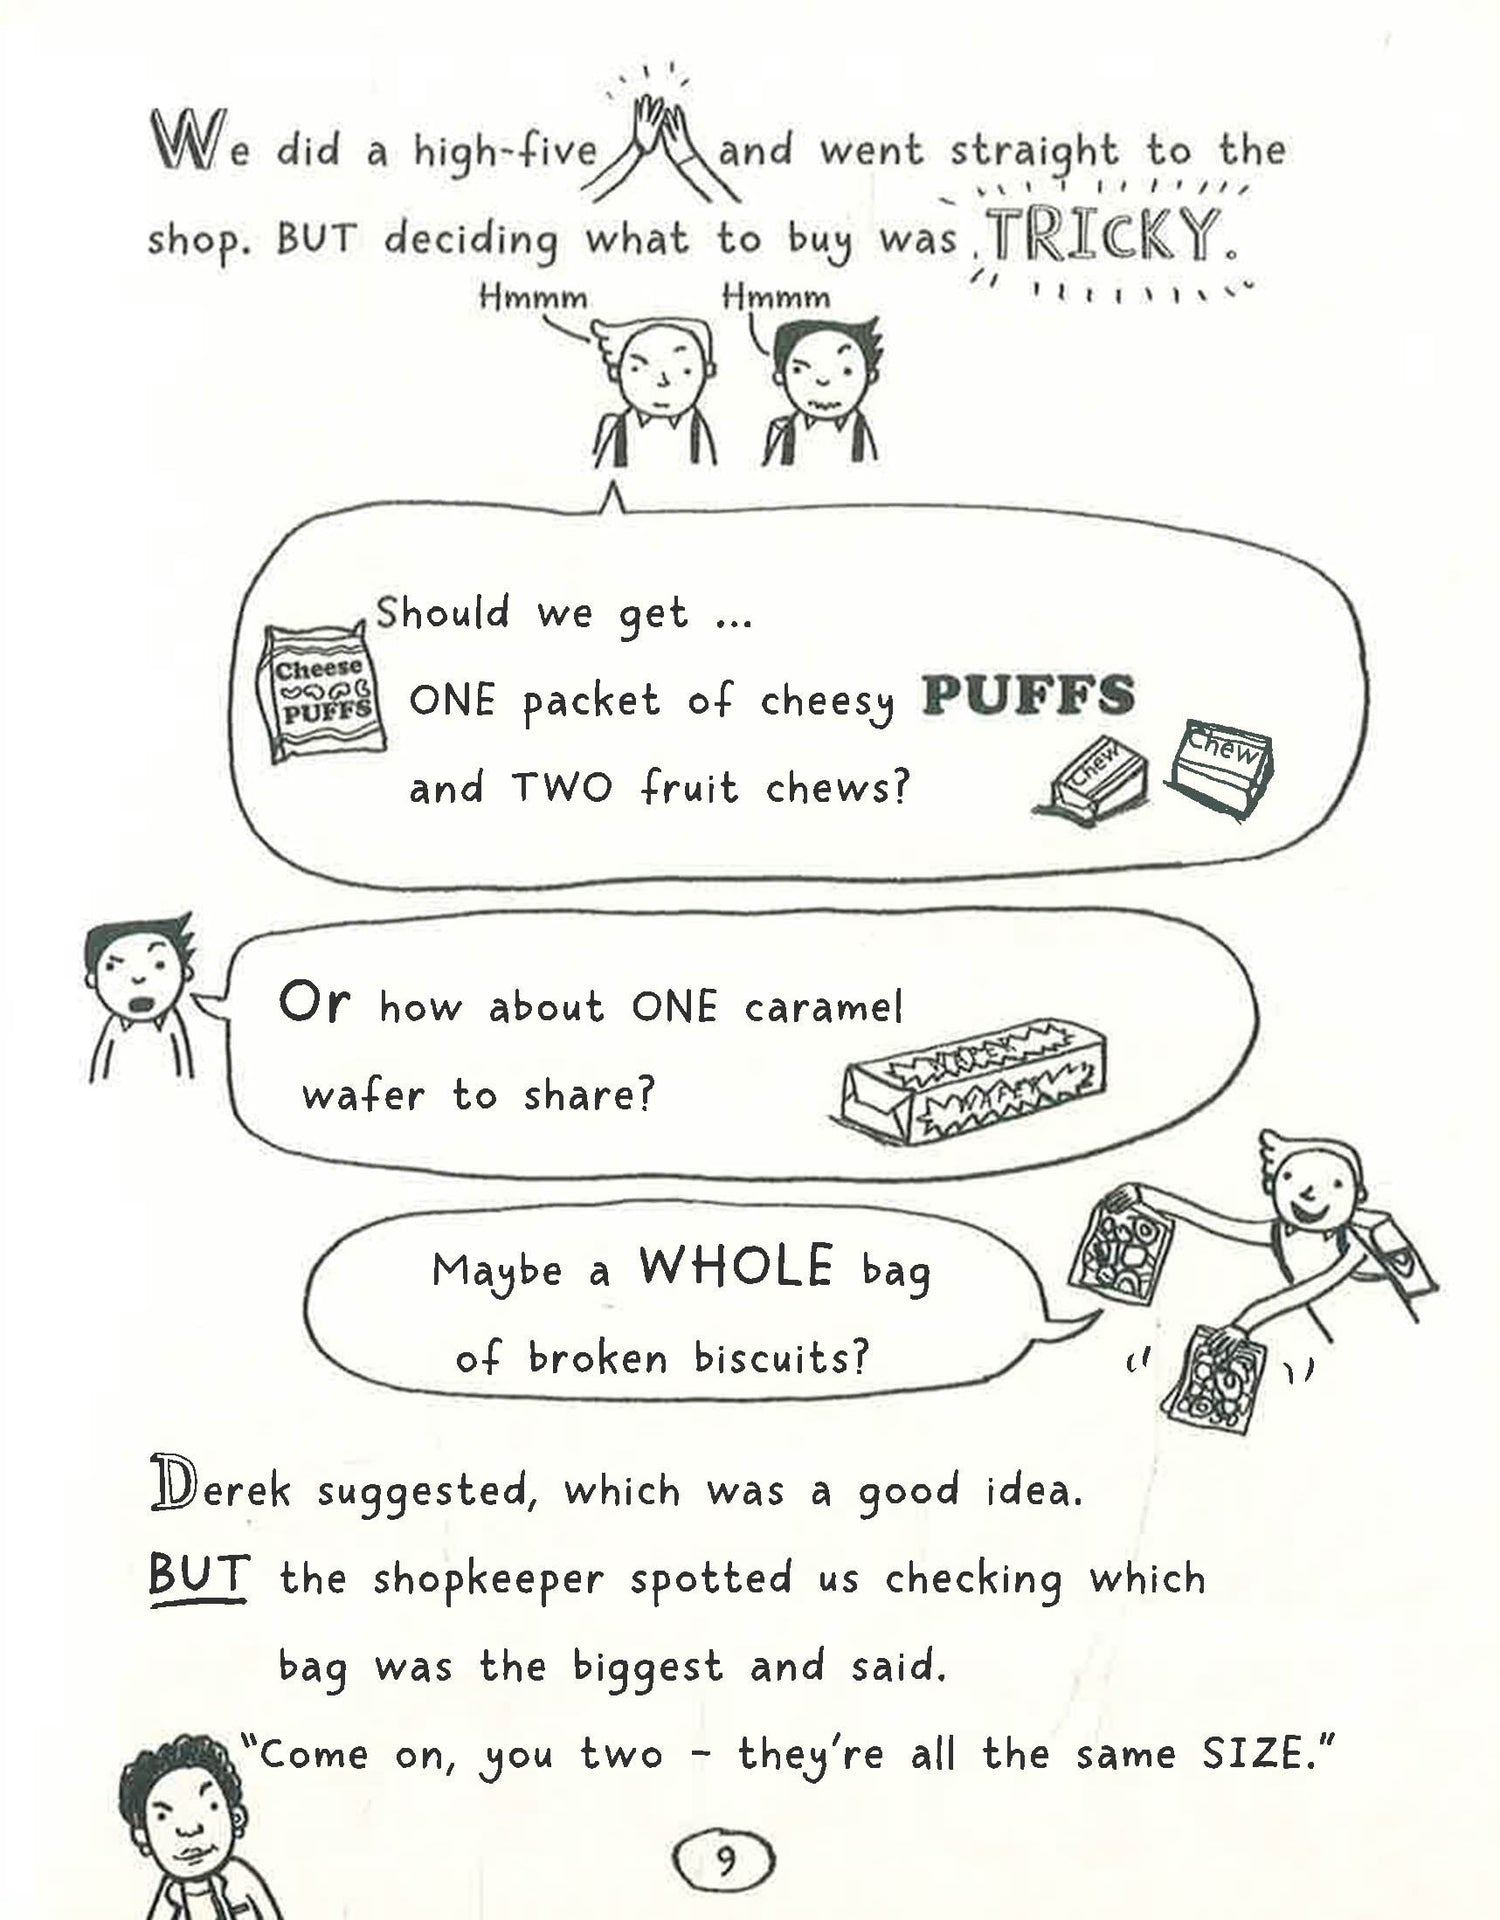 We did a high-five and went straight to the
shop. BUT deciding what to buy was TRICKY.
Hmmm Hmmm
Should we get ...
Cheese
PUFFS
ONE packet of cheesy PUFFS
and TWO fruit chews?
Chew
Chew
Or how about ONE caramel
wafer to share?
WAFER
WAFER
Maybe a WHOLE bag
of broken biscuits?
Derek suggested, which was a good idea.
BUT the shopkeeper spotted us checking which
bag was the biggest and said.
"Come on, you two – they're all the same SIZE."
9